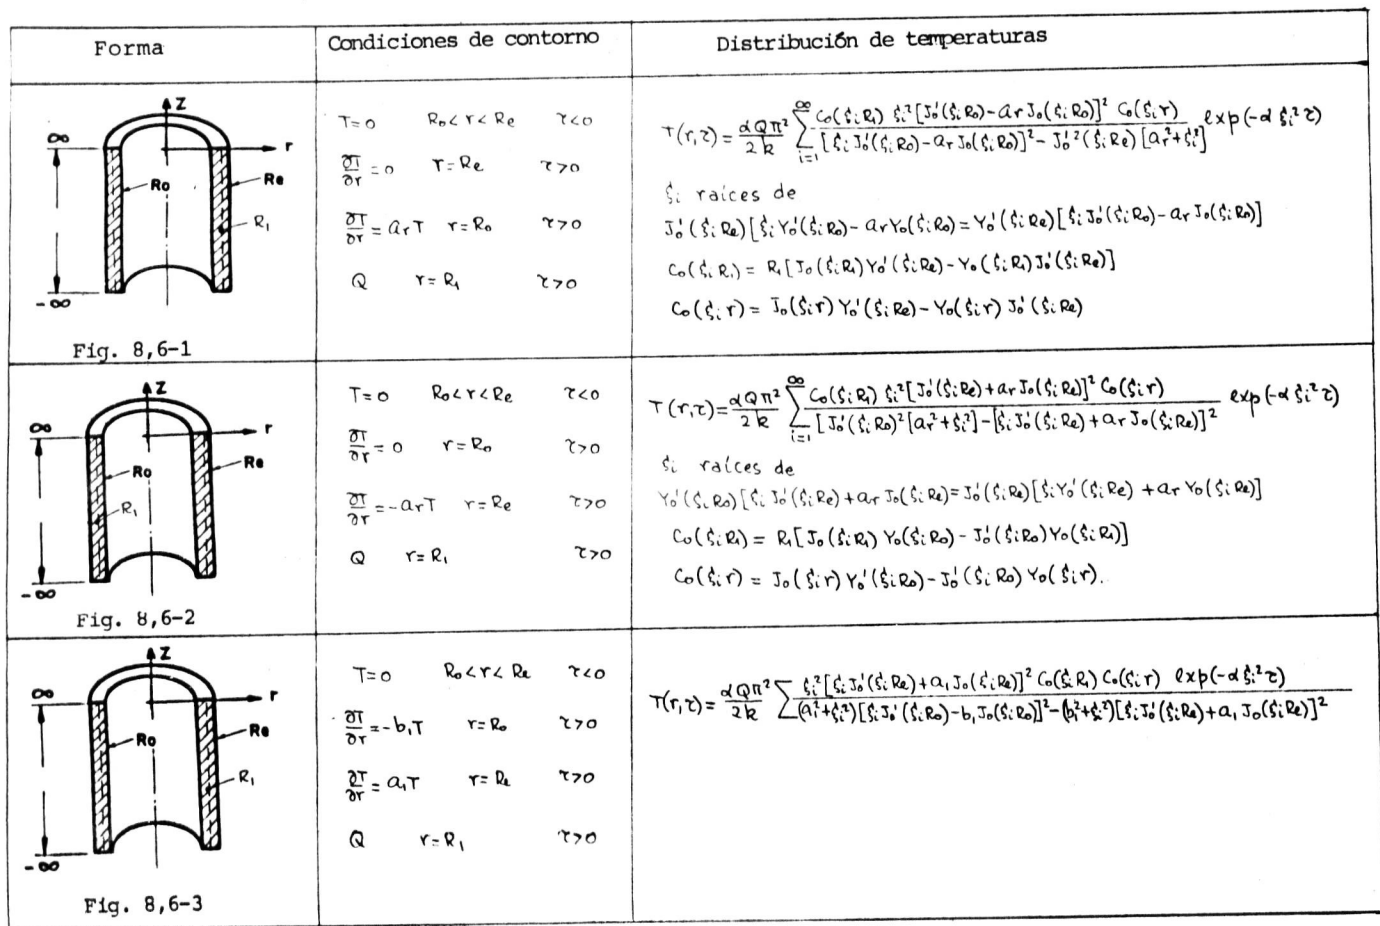 Forma
Condiciones de contorno
Distribución de temperaturas
Z
∞
r
Ro
Re
R₁
-∞
Fig. 8,6-1
T=0 R₀<r<Re τ<0
∂T/∂r = 0 r=Re τ>0
∂T/∂r = a_r T r=R₀ τ>0
Q r=R₁ τ>0
T(r,τ) = αQπ²/2k ∑_{i=1}^{∞} C₀(ξᵢR₁) ξᵢ²[J₀'(ξᵢR₀)-a_r J₀(ξᵢR₀)]² C₀(ξᵢr) / [ξᵢ J₀'(ξᵢR₀)-a_r J₀(ξᵢR₀)]² - J₀'²(ξᵢRe)[a_r²+ξᵢ²] exp(-α ξᵢ² τ)
ξᵢ raíces de
J₀'(ξᵢRe)[ξᵢY₀'(ξᵢR₀)-a_rY₀(ξᵢR₀)=Y₀'(ξᵢRe)[ξᵢJ₀'(ξᵢR₀)-a_r J₀(ξᵢR₀)]
C₀(ξᵢR₁) = R₁[J₀(ξᵢR₁)Y₀'(ξᵢRe)-Y₀(ξᵢR₁)J₀'(ξᵢRe)]
C₀(ξᵢr) = J₀(ξᵢr)Y₀'(ξᵢRe)-Y₀(ξᵢr)J₀'(ξᵢRe)
Z
∞
r
Ro
Re
R₁
-∞
Fig. 8,6-2
T=0 R₀<r<Re τ<0
∂T/∂r = 0 r=R₀ τ>0
∂T/∂r = -a_rT r=Re τ>0
Q r=R₁ τ>0
T(r,τ) = αQπ²/2k ∑_{i=1}^{∞} C₀(ξᵢR₁) ξᵢ²[J₀'(ξᵢRe)+a_r J₀(ξᵢRe)]² C₀(ξᵢr) / [J₀'(ξᵢR₀)²[a_r²+ξᵢ²]-[ξᵢJ₀'(ξᵢRe)+a_r J₀(ξᵢRe)]² exp(-α ξᵢ² τ)
ξᵢ raíces de
Y₀'(ξᵢR₀)[ξᵢJ₀'(ξᵢRe)+a_r J₀(ξᵢRe)=J₀'(ξᵢRe)[ξᵢY₀'(ξᵢRe)+a_r Y₀(ξᵢRe)]
C₀(ξᵢR₁) = R₁[J₀(ξᵢR₁)Y₀(ξᵢR₀)-J₀'(ξᵢR₀)Y₀(ξᵢR₁)]
C₀(ξᵢr) = J₀(ξᵢr)Y₀'(ξᵢR₀)-J₀'(ξᵢR₀)Y₀(ξᵢr).
Z
∞
r
Ro
Re
R₁
-∞
Fig. 8,6-3
T=0 R₀<r<Re τ<0
∂T/∂r = -b₁T r=R₀ τ>0
∂T/∂r = a₁T r=Re τ>0
Q r=R₁ τ>0
T(r,τ) = αQπ²/2k ∑ ξᵢ²[ξᵢJ₀'(ξᵢRe)+a₁J₀(ξᵢRe)]² C₀(ξᵢR₁) C₀(ξᵢr) exp(-αξᵢ²τ) / (a₁²+ξᵢ²)[ξᵢJ₀'(ξᵢR₀)-b₁J₀(ξᵢR₀)]²-(b₁²+ξᵢ²)[ξᵢJ₀'(ξᵢRe)+a₁J₀(ξᵢRe)]²